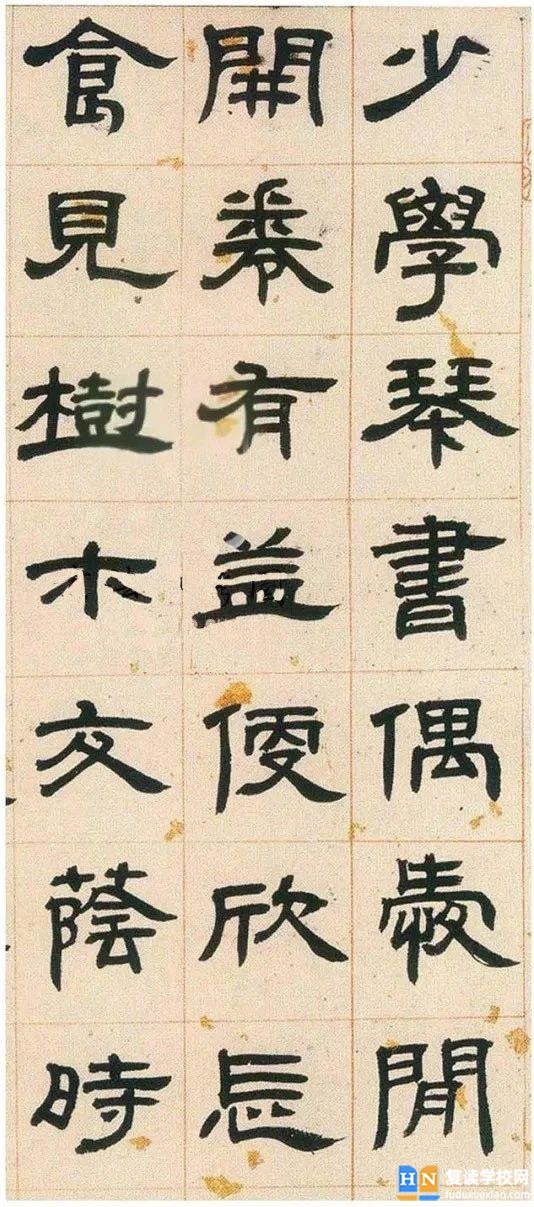 少學琴書偶愛閒
開卷有益便欣忘
食見樹木交蔭時
HN 复读学校网
fuduxuexiao.com